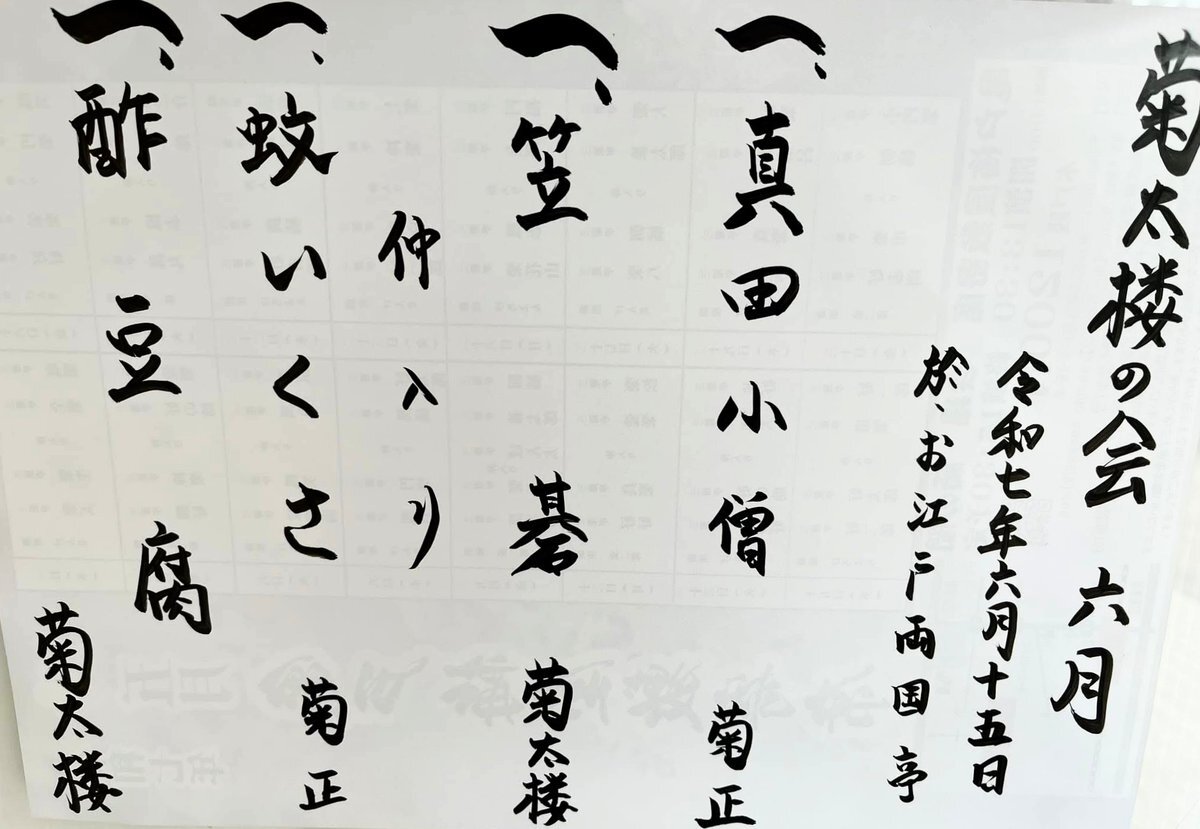 菊太楼の会 六月
令和七年六月十五日
於、お江戸両国亭
一、真田小僧 菊正
一、笠碁 菊太楼
仲入り
一、蚊いくさ 菊正
一、酢豆腐 菊太楼